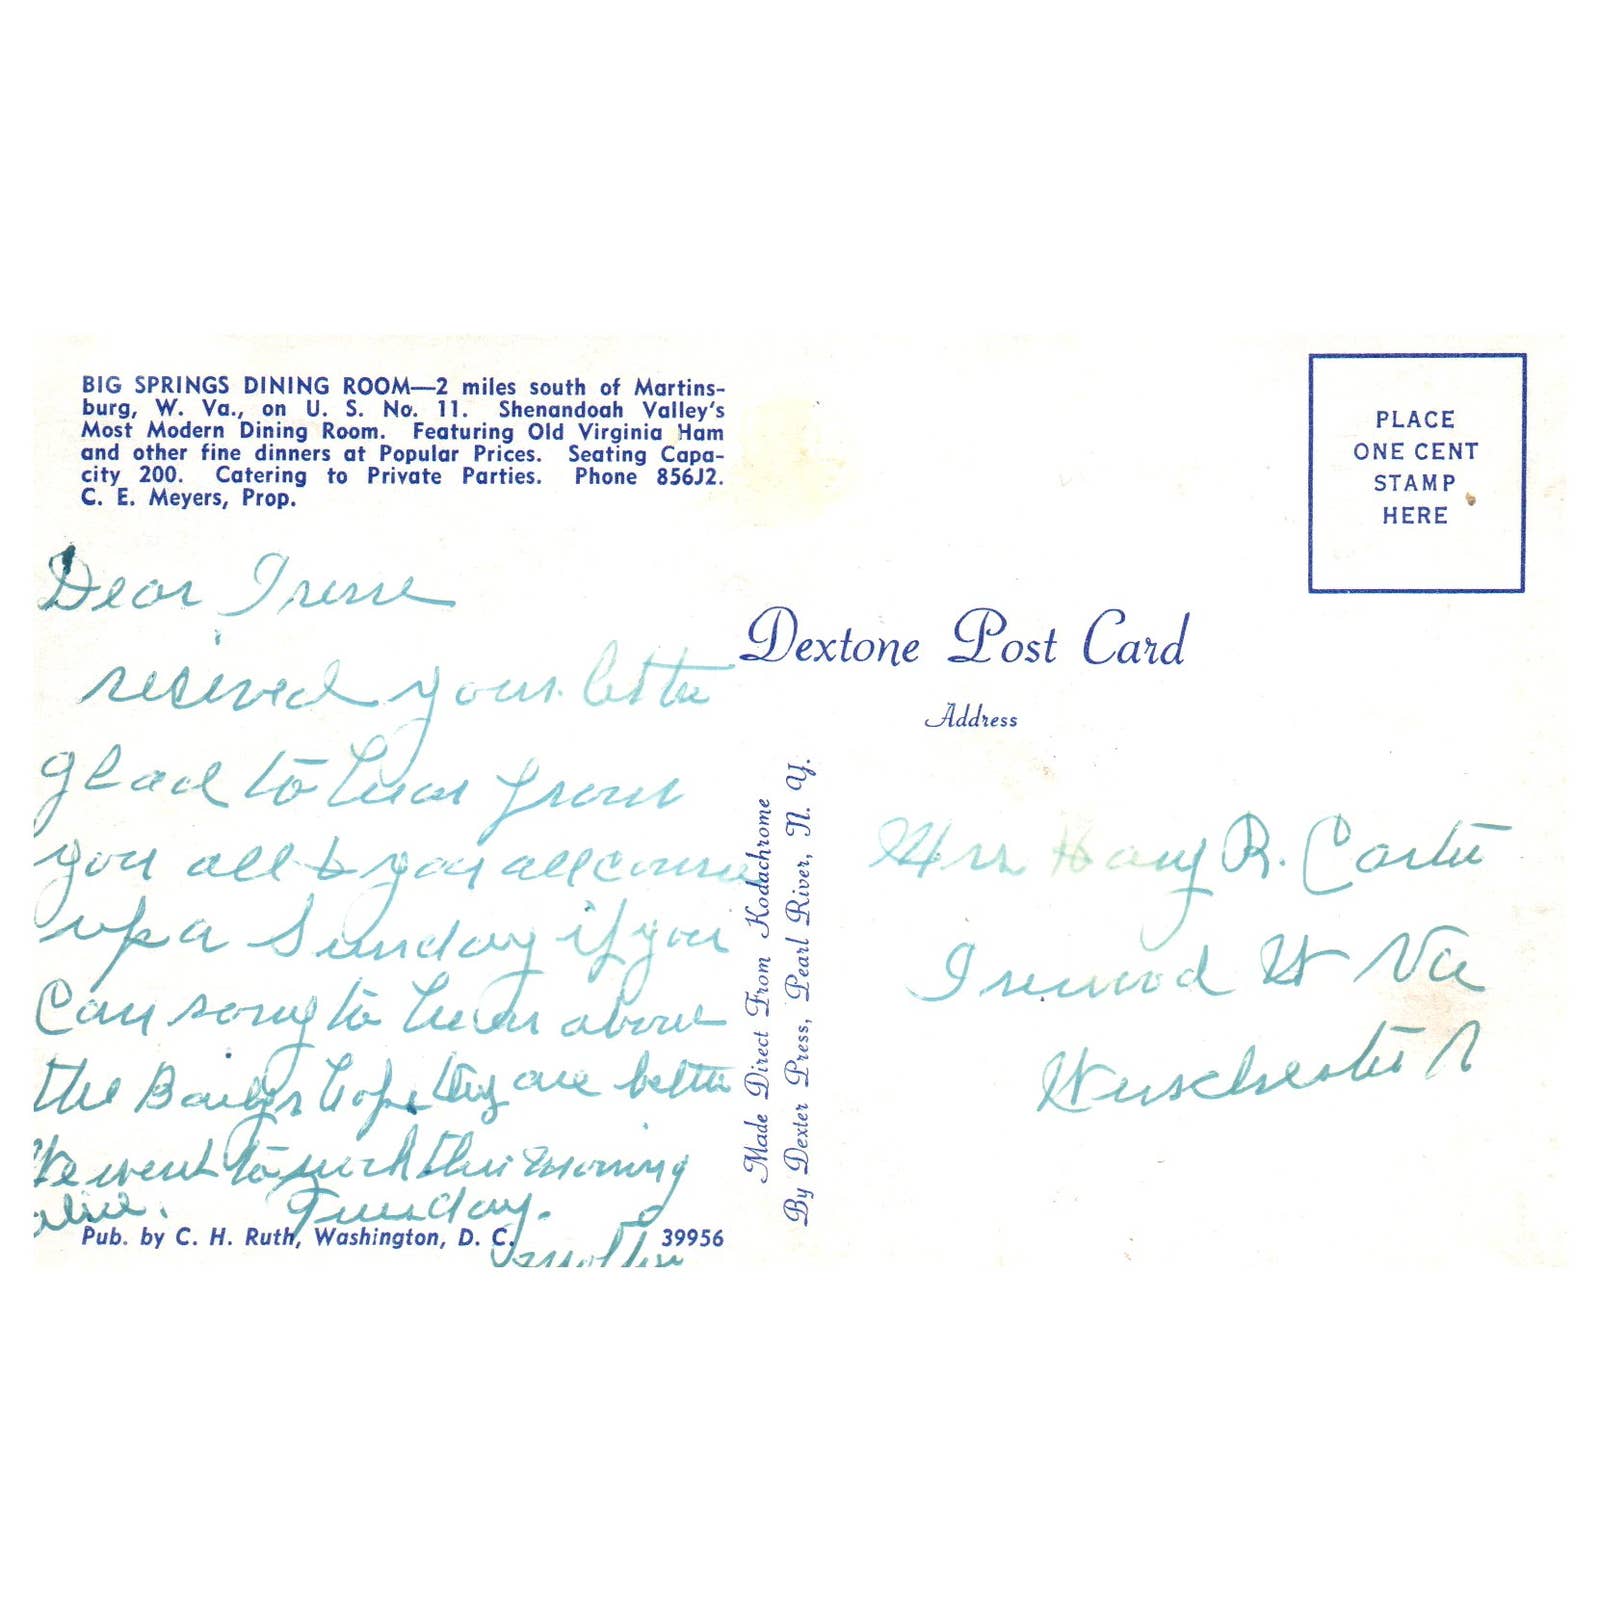 BIG SPRINGS DINING ROOM—2 miles south of Martins-
burg, W. Va., on U. S. No. 11. Shenandoah Valley's
Most Modern Dining Room. Featuring Old Virginia Ham
and other fine dinners at Popular Prices. Seating Capa-
city 200. Catering to Private Parties. Phone 856J2.
C. E. Meyers, Prop.
Dear Irene
recived your letter
glad to hear from
you all & you all come
up a Sunday if you
Can sorry to hear about
the Bailys hope they are better
We went to work this morning
Tuesday.
Pub. by C. H. Ruth, Washington, D. C.
39956
Made Direct From Kodachrome
By Dexter Press, Pearl River, N. Y.
PLACE
ONE CENT
STAMP
HERE
Dextone Post Card
Address
Mrs Harry R. Carter
Inwood W Va